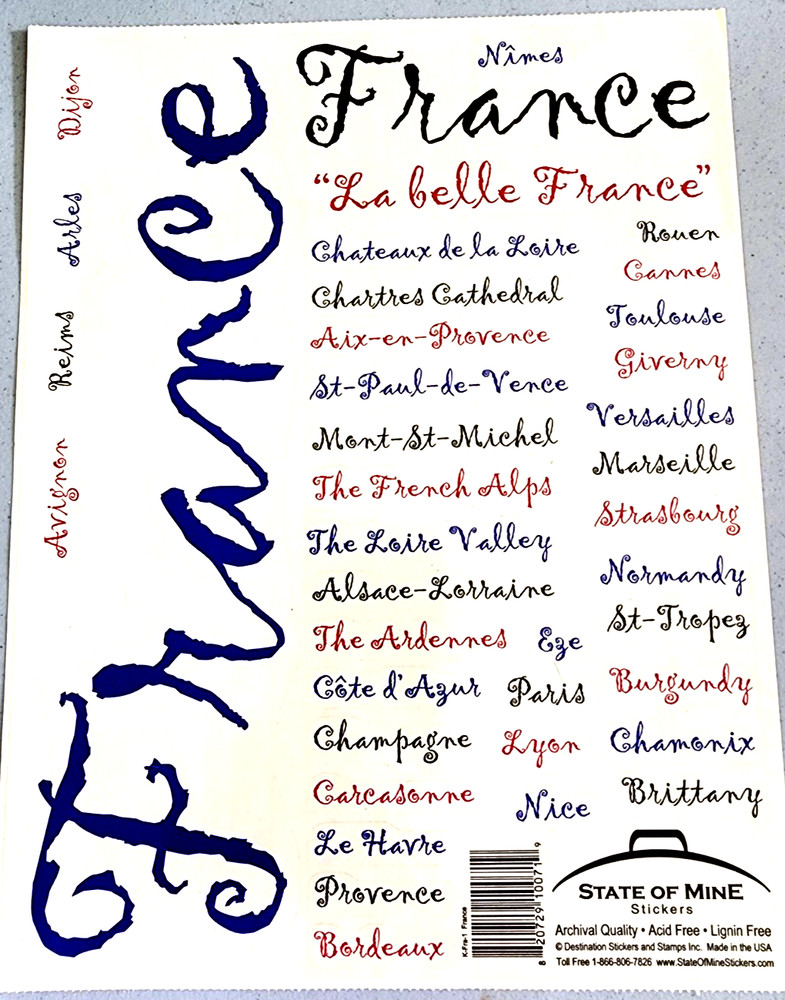 Dijon
Arles
Reims
Avignon
France
Nîmes
France
“La belle France”
Chateaux de la Loire
Chartres Cathedral
Aix-en-Provence
St-Paul-de-Vence
Mont-St-Michel
The French Alps
The Loire Valley
Alsace-Lorraine
The Ardennes
Eze
Côte d'Azur
Paris
Champagne
Lyon
Carcasonne
Nice
Le Havre
Provence
Bordeaux
Rouen
Cannes
Toulouse
Giverny
Versailles
Marseille
Strasbourg
Normandy
St-Tropez
Burgundy
Chamonix
Brittany
K-Fra-1 France
8 20729 10071 9
STATE OF MINE
Stickers
Archival Quality • Acid Free • Lignin Free
© Destination Stickers and Stamps Inc. Made in the USA
Toll Free 1-866-806-7826 www.StateOfMineStickers.com